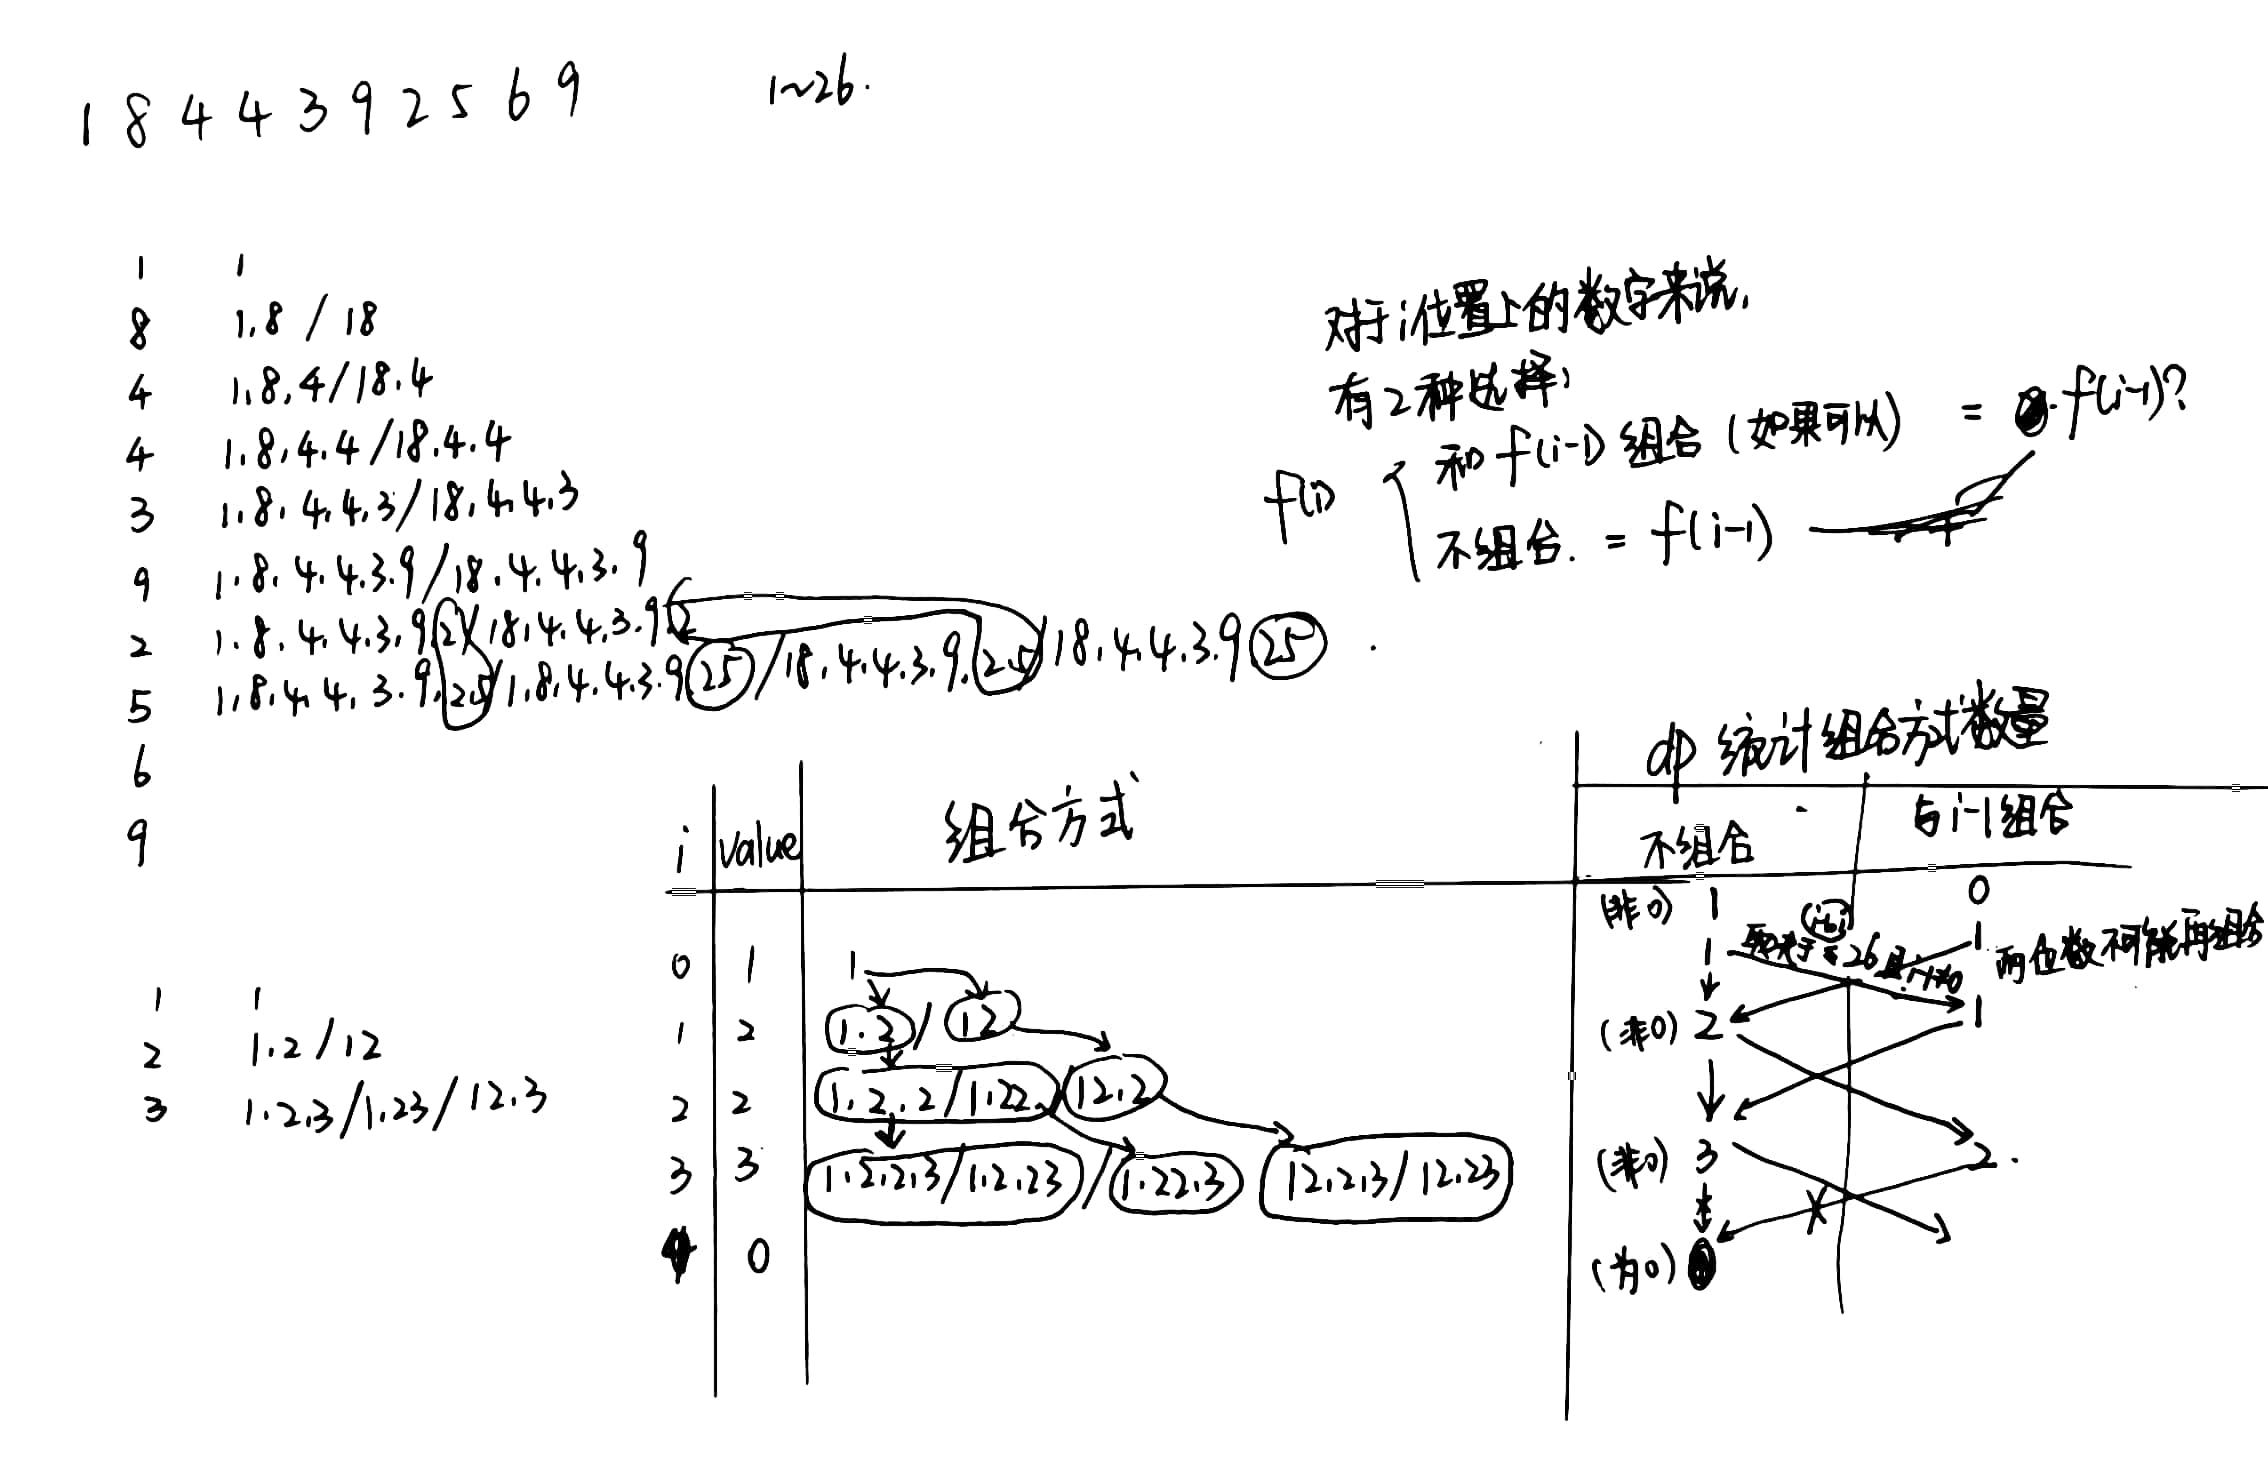 1 8 4 4 3 9 2 5 6 9
1~26.
1 1
8 1.8 / 18
4 1.8.4/18.4
4 1.8.4.4/18.4.4
3 1.8.4.4.3/18.4.4.3
9 1.8.4.4.3.9/18.4.4.3.9
2 1.8.4.4.3.9.2/18.4.4.3.9.2
5 1.8.4.4.3.9.2.5/1.8.4.4.3.9.25/18.4.4.3.9.2.5/18.4.4.3.9.25
6
9
对于i位置上的数字来说,
有2种选择,
f(i)
和f(i-1)组合(如果可以) = f(i-1)?
不组合. = f(i-1)
1 1
2 1.2/12
3 1.2.3/1.23/12.3
i value 组合方式
0 1 1
1 2 1.2/12
2 2 1.2.2/1.22/12.2
3 3 1.2.2.3/1.2.23/1.22.3/12.2.3/12.23
0
dp 统计组合方式数量
不组合 与i-1组合
(非0) 1 0
1 26且i-1≠0 1 两位数不可能再组合
(非0) 2 1
(非0) 3 2.
(为0)